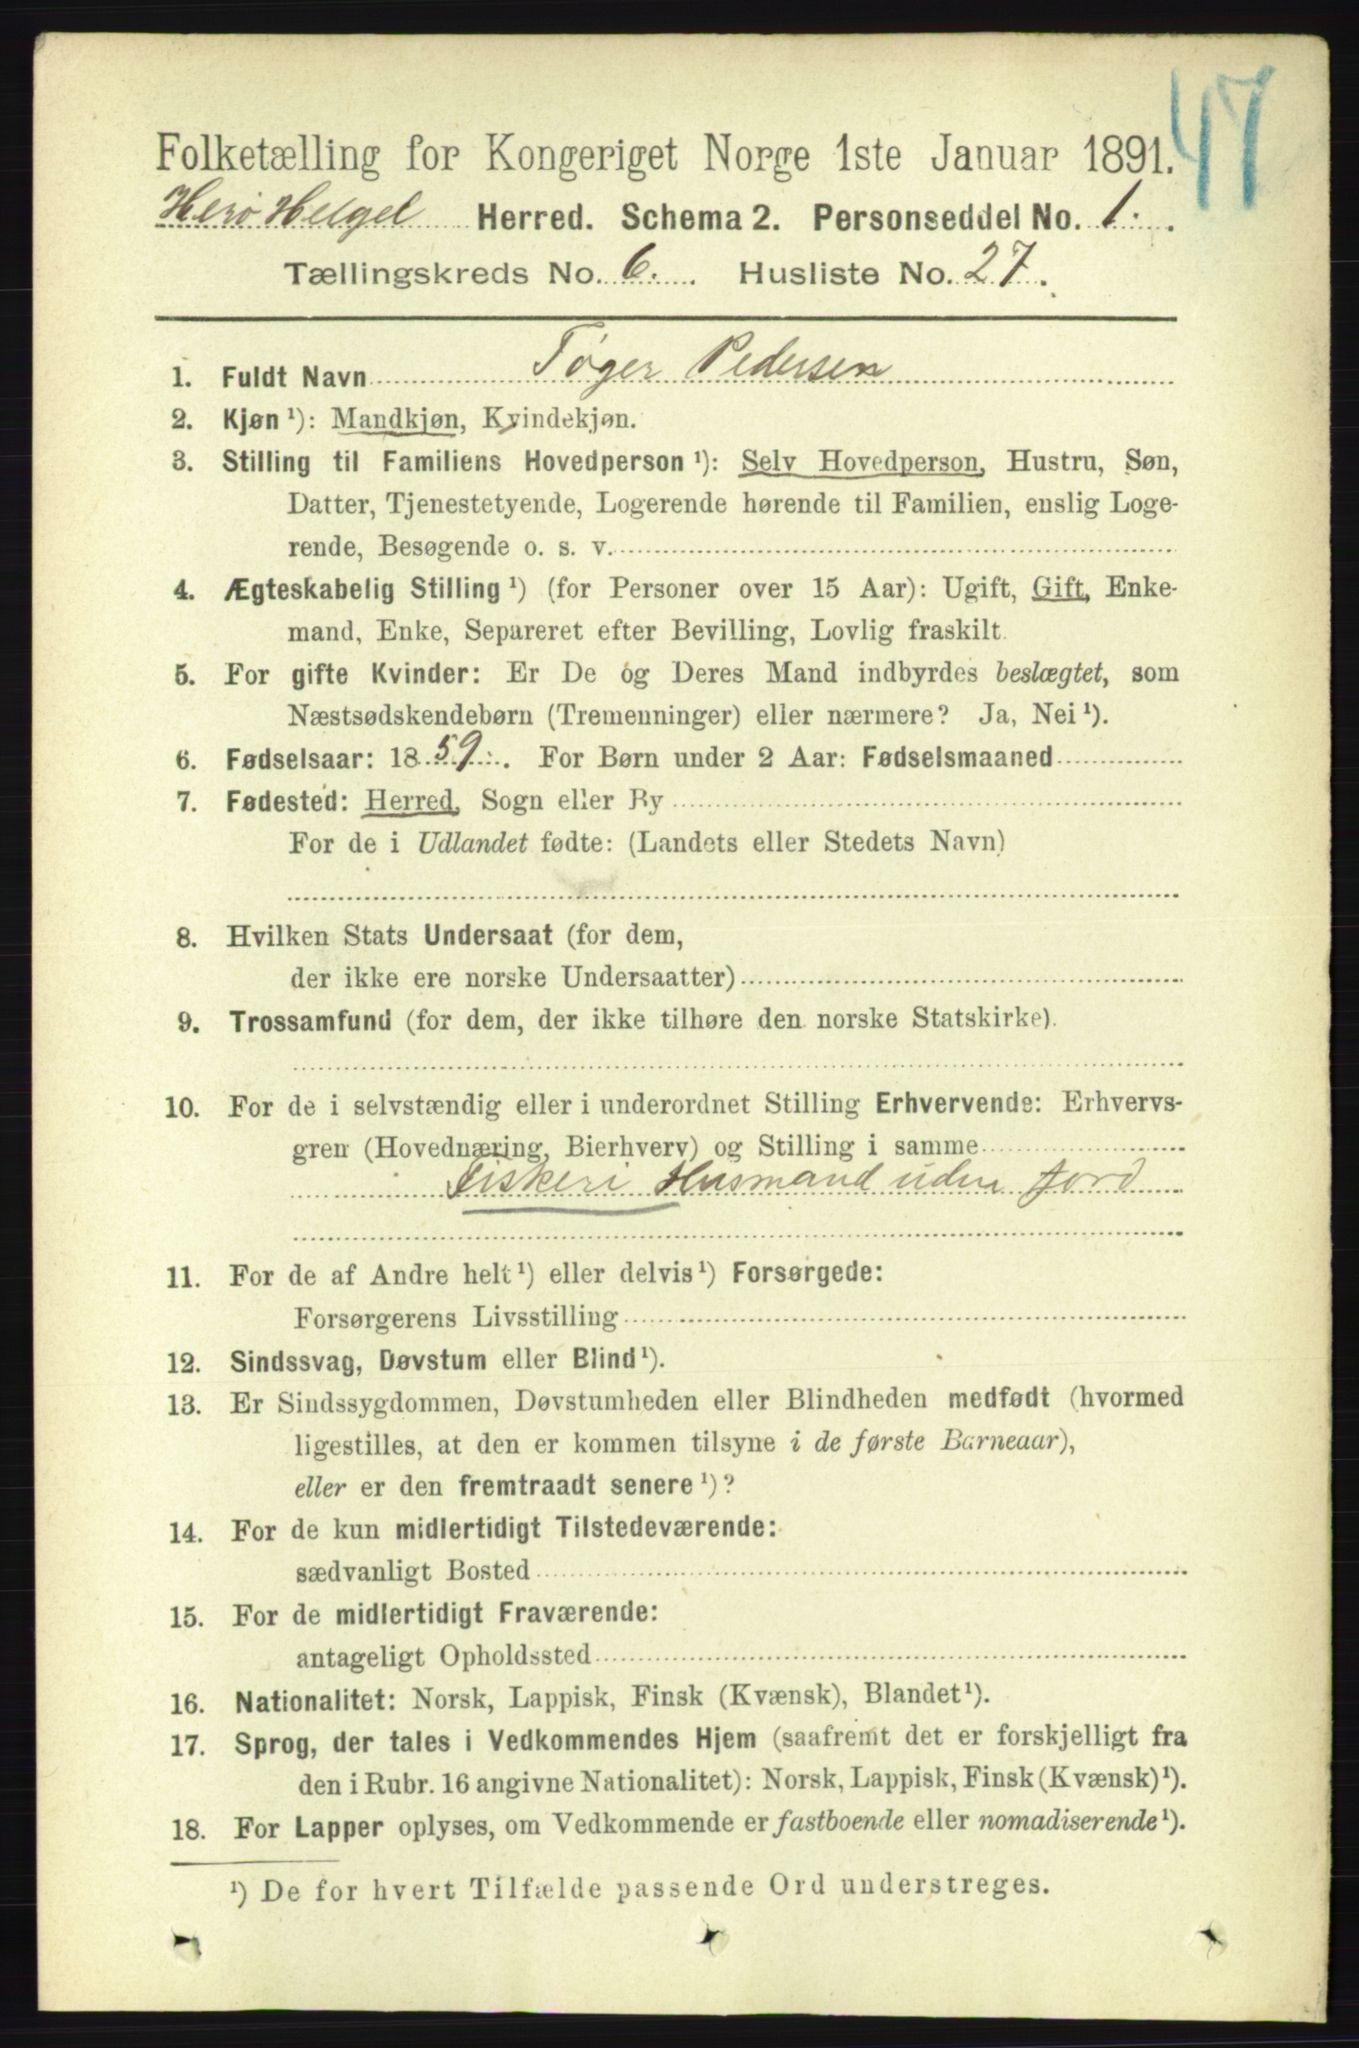 47
Folketælling for Kongeriget Norge 1ste Januar 1891.
Herö Helgel Herred. Schema 2. Personseddel No. 1.
Tællingskreds No. 6. Husliste No. 27.
1. Fuldt Navn Töger Pedersen
2. Kjøn ¹): Mandkjøn, Kvindekjøn.
3. Stilling til Familiens Hovedperson ¹): Selv Hovedperson, Hustru, Søn,
Datter, Tjenestetyende, Logerende hørende til Familien, enslig Loge-
rende, Besøgende o. s. v.
4. Ægteskabelig Stilling ¹) (for Personer over 15 Aar): Ugift, Gift, Enke-
mand, Enke, Separeret efter Bevilling, Lovlig fraskilt.
5. For gifte Kvinder: Er De og Deres Mand indbyrdes beslægtet, som
Næstsødskendebørn (Tremenninger) eller nærmere? Ja, Nei ¹).
6. Fødselsaar: 1859. For Børn under 2 Aar: Fødselsmaaned
7. Fødested: Herred, Sogn eller By
For de i Udlandet fødte: (Landets eller Stedets Navn)
8. Hvilken Stats Undersaat (for dem,
der ikke ere norske Undersaatter)
9. Trossamfund (for dem, der ikke tilhøre den norske Statskirke).
10. For de i selvstændig eller i underordnet Stilling Erhvervende: Erhvervs-
gren (Hovednæring, Bierhverv) og Stilling i samme
Fiskeri Husmand uden Jord
11. For de af Andre helt ¹) eller delvis ¹) Forsørgede:
Forsørgerens Livsstilling
12. Sindssvag, Døvstum eller Blind ¹).
13. Er Sindssygdommen, Døvstumheden eller Blindheden medfødt (hvormed
ligestilles, at den er kommen tilsyne i de første Barneaar),
eller er den fremtraadt senere ¹)?
14. For de kun midlertidigt Tilstedeværende:
sædvanligt Bosted
15. For de midlertidigt Fraværende:
antageligt Opholdssted
16. Nationalitet: Norsk, Lappisk, Finsk (Kvænsk), Blandet ¹).
17. Sprog, der tales i Vedkommendes Hjem (saafremt det er forskjelligt fra
den i Rubr. 16 angivne Nationalitet): Norsk, Lappisk, Finsk (Kvænsk) ¹).
18. For Lapper oplyses, om Vedkommende er fastboende eller nomadiserende ¹).
¹) De for hvert Tilfælde passende Ord understreges.